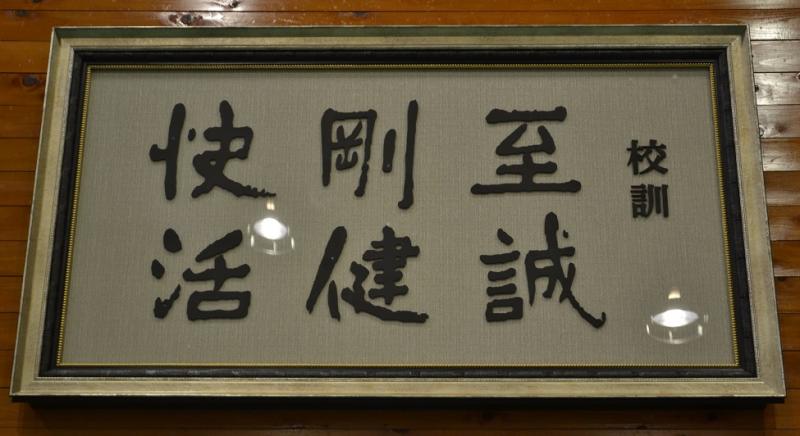 校訓
至誠
剛健
快活